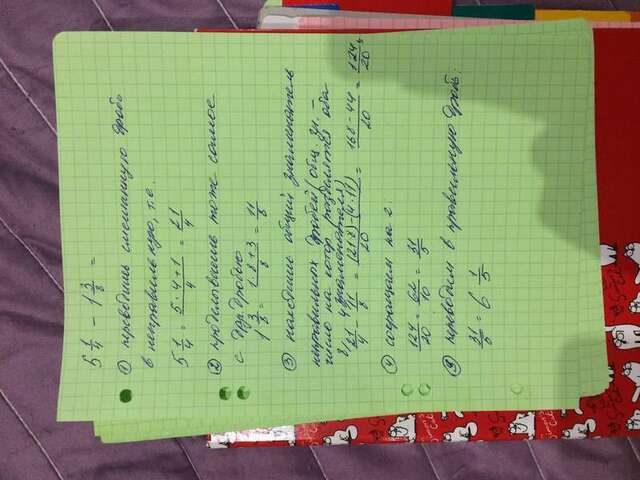 5 1/4 - 1 3/8 =
① переводишь смешанную дробь
в неправильную, т.е.
5 1/4 = (5·4+1)/4 = 21/4
② проделываешь тоже самое
с др. дробью
1 3/8 = (1·8+3)/8 = 11/8
③ находишь общий знаменатель
неправильных дробей (общ. зн. -
число на котор разделятся оба
знаменателя)
8/ 21/4 - 4/ 11/8 = ((21·8)-(4·11))/20 = (168-44)/20 = 124/20
④ сокращаем на 2:
124/20 = 62/10 = 31/5
переводим в правильную дробь:
31/5 = 6 1/5
Simon's Cat